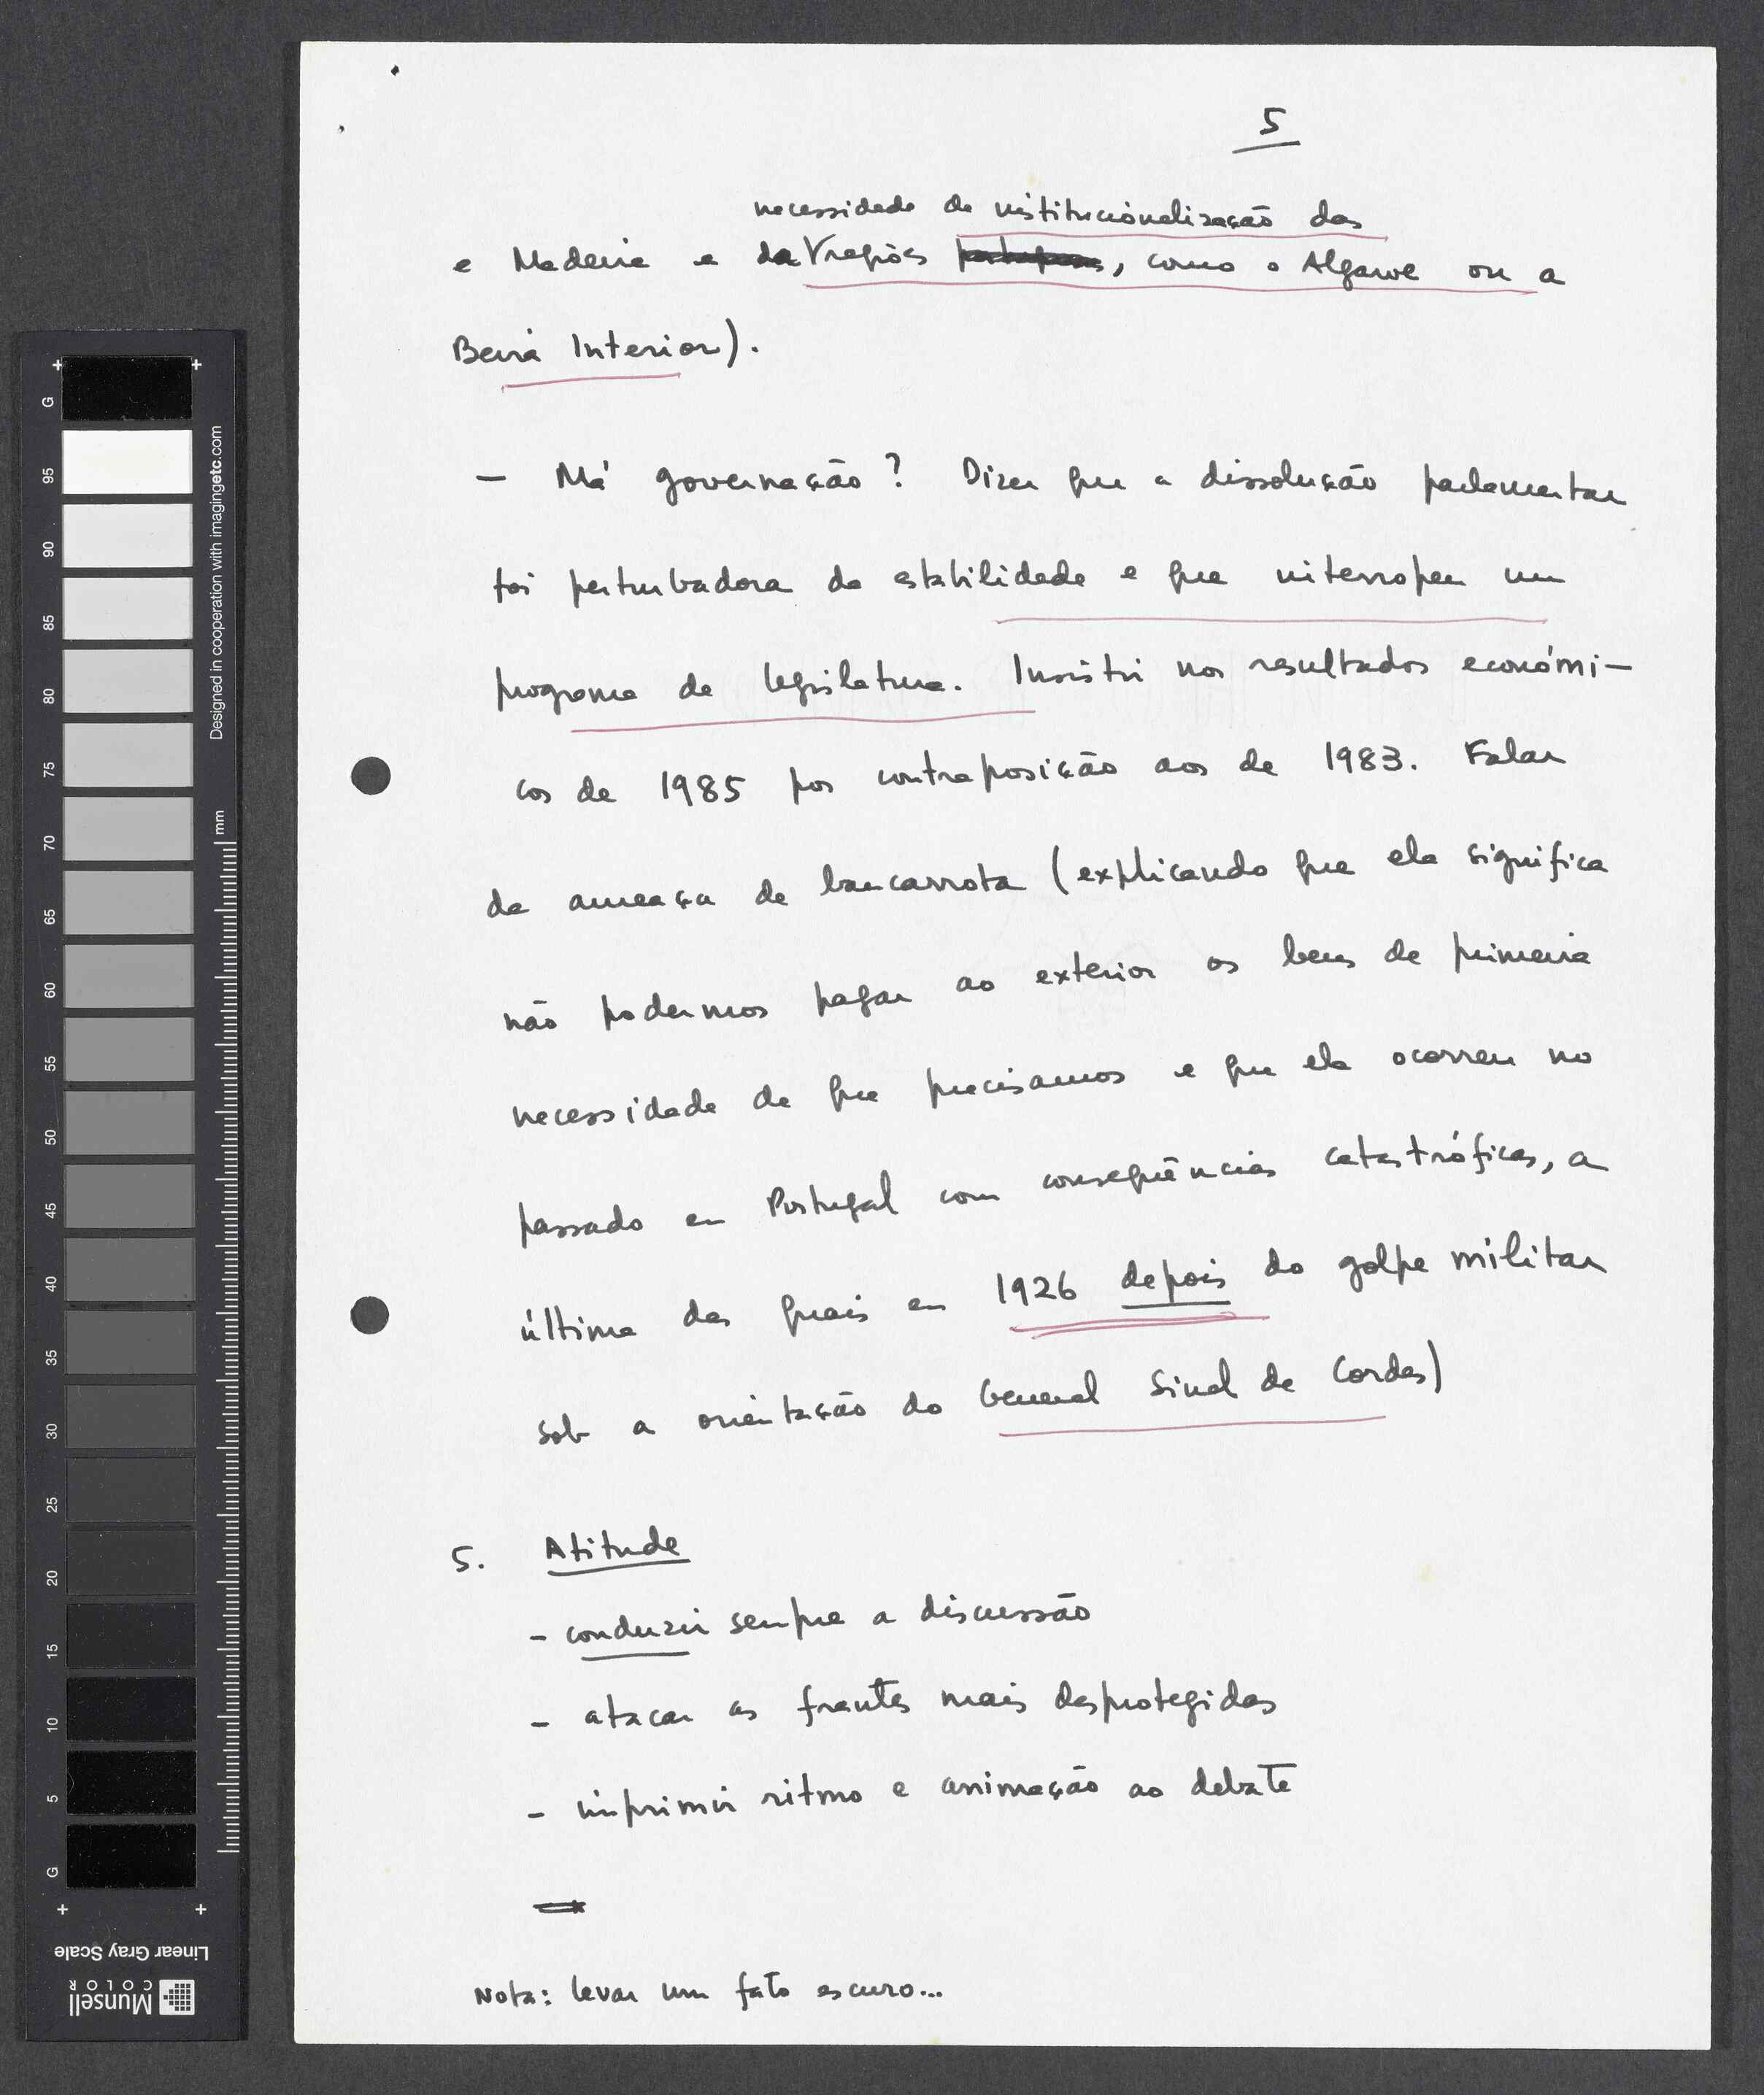 5
necessidade de institucionalização das
e Madeira e da V regiões , como o Algarve ou a
Beira Interior).
— Má governação? Dizer que a dissolução parlamentar
foi perturbadora da estabilidade e que interrompeu um
programa de legislatura. Insistir nos resultados económi-
cos de 1985 por contraposição aos de 1983. Falar
da ameaça de bancarrota (explicando que ela significa
não podermos pagar ao exterior os bens de primeira
necessidade de que precisamos e que ela ocorreu no
passado em Portugal com consequências catastróficas, a
última das quais em 1926 depois do golpe militar
sob a orientação do General Sinel de Cordes)
5. Atitude
- conduzir sempre a discussão
- atacar as frentes mais desprotegidas
- imprimir ritmo e animação ao debate
Nota: levar um fato escuro...
G 95 90 85 80 75 70 65 60 55 50 45 40 35 30 25 20 15 10 5 G
Designed in cooperation with imagingetc.com
mm
Linear Gray Scale
Munsell
COLOR